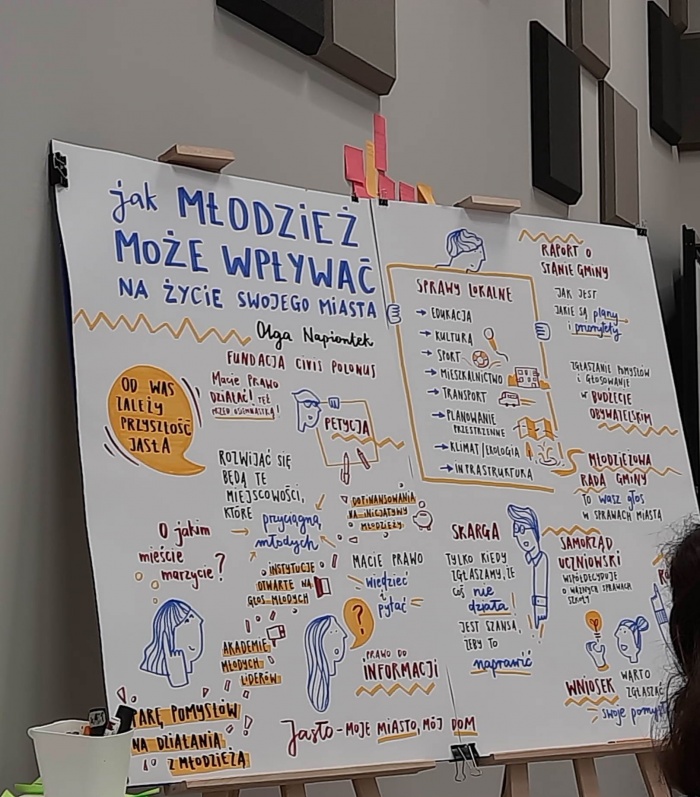 jak MŁODZIEŻ
MOŻE WPŁYWAĆ
NA ŻYCIE SWOJEGO MIASTA
Olga Napiontek
FUNDACJA CIVIS POLONUS
OD WAS
ZALEŻY
PRZYSZŁOŚĆ
JASŁA
Macie PRAWO
DZIAŁAĆ! TEŻ
PRZED OSIEMNASTKĄ!
PETYCJA
ROZWIJAĆ SIĘ
BĘDĄ TE
MIEJSCOWOŚCI,
KTÓRE
przyciągną
młodych
DOFINANSOWANIA
NA INICJATYWY
MŁODZIEŻY
O jakim
mieście
marzycie?
INSTYTUCJE
OTWARTE NA
GŁOS MŁODYCH
MACIE PRAWO
wiedzieć
i
pytać
AKADEMIE
MŁODYCH
LIDERÓW
?
PRAWO DO
INFORMACJI
PARĘ POMYSŁÓW
NA DZIAŁANIA
Z MŁODZIEŻĄ
Jasło - MOJE MIASTO, MÓJ DOM
SPRAWY LOKALNE
→ EDUKACJA
→ KULTURA
→ SPORT
→ MIESZKALNICTWO
→ TRANSPORT
→ PLANOWANIE
PRZESTRZENNE
→ KLIMAT/EKOLOGIA
→ INFRASTRUKTURA
RAPORT O
STANIE GMINY
JAK JEST
JAKIE SĄ plany
i priorytety
ZGŁASZANIE POMYSŁÓW
i GŁOSOWANIE
w BUDŻECIE
OBYWATELSKIM
MŁODZIEŻOWA
RADA GMINY
TO wasz głos
W SPRAWACH MIASTA
SKARGA
TYLKO KIEDY
ZGŁASZAMY, ŻE
COŚ nie
działa!
JEST SZANSA,
ŻEBY TO
naprawić
SAMORZĄD
UCZNIOWSKI
WSPÓŁDECYDUJE
O WAŻNYCH SPRAWACH
SZKOŁY
WNIOSEK
WARTO
ZGŁASZAĆ
swoje